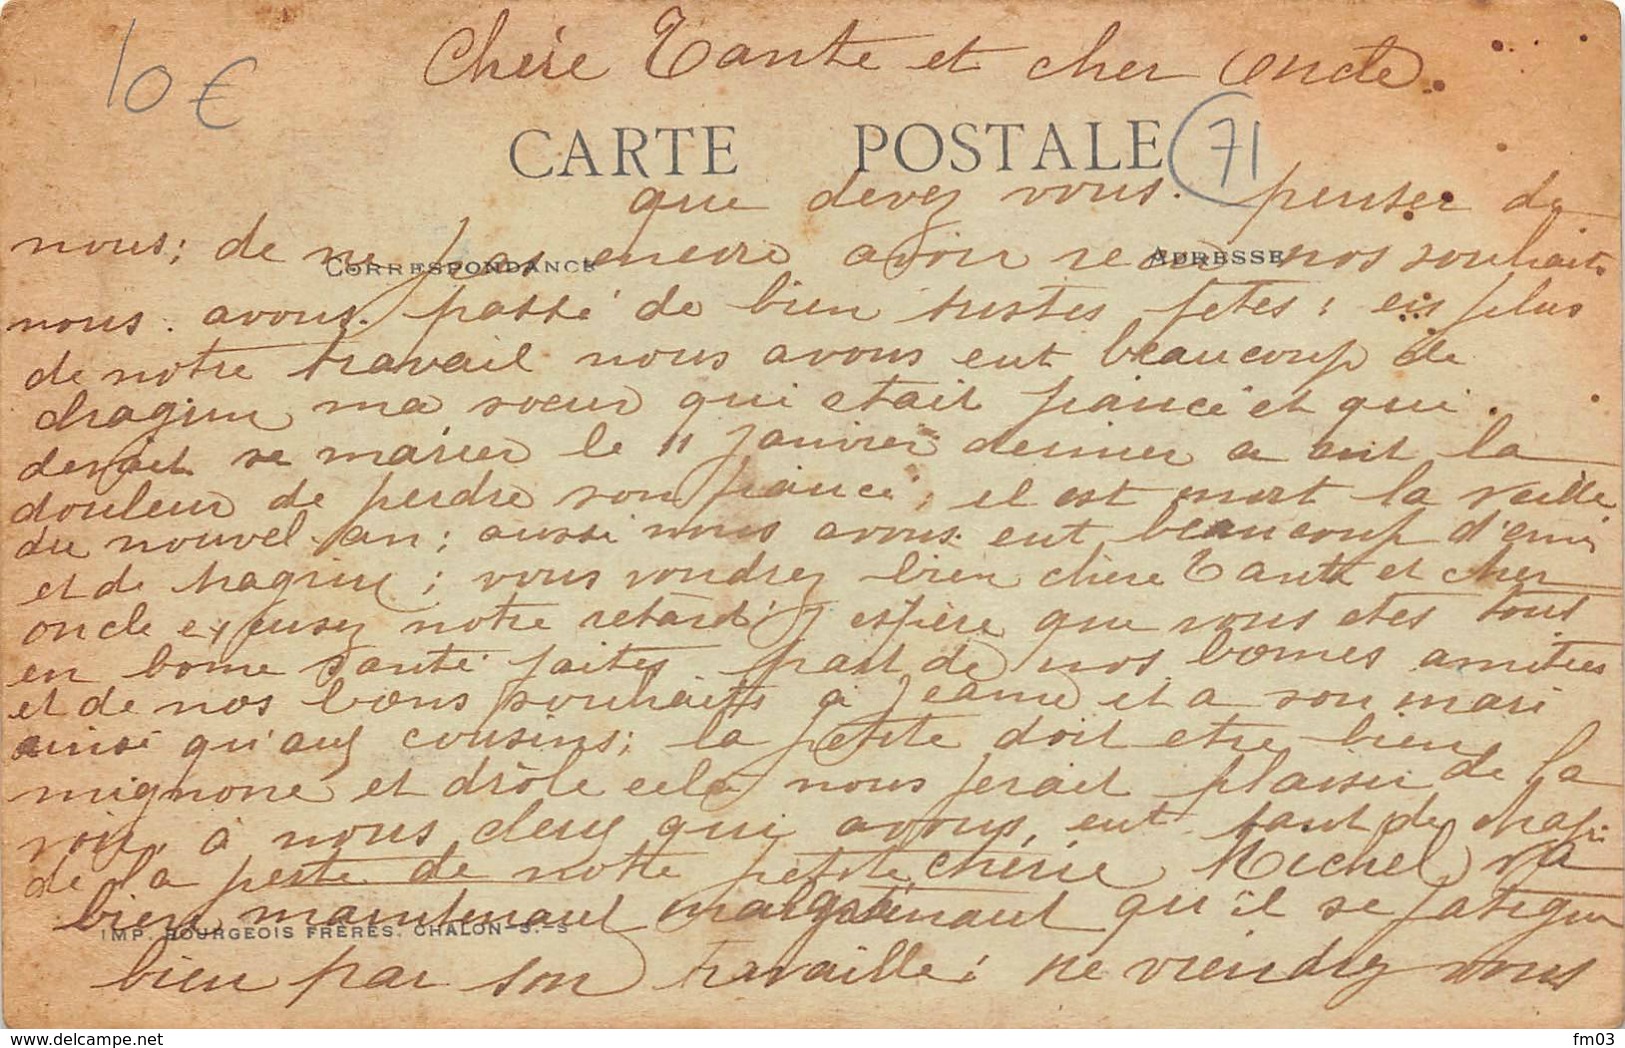 10 €
Chère Tante et cher Oncle.
CARTE POSTALE
71
que devez vous. penser de
CORRESPONDANCE
ADRESSE
nous; de ne pas encore avoir recu nos souhaits
nous. avons. passé de bien tristes fetes; en plus
de notre travail nous avons eut beaucoup de
chagrin ma soeur qui etait fiancé et qui.
devait se marier le 11 janvier dernier a eut la
douleur de perdre son fiancé; il est mort la veille
du nouvel an; aussi nous avons eut beaucoup d'enui
et de hagrin; vous voudrez bien chère Tante et cher
oncle excusez notre retard; j espère que vous etes tous
en bonne santé faites part de nos bonnes amities
et de nos bons souhaits a Jeanne et a son mari
ainsi qu'aux cousins; la petite doit etre bien
mignone et drôle cela nous ferait plaisir de la
voir. à nous deux qui avons, eut tant de chagri
de la perte de notre petite chérie Michel va
bien maintenant qu'il se fatigue
IMP. BOURGEOIS FRÈRES. CHALON-S.-S
bien par son travaille; ne viendrez vous
www.delcampe.net
fm03